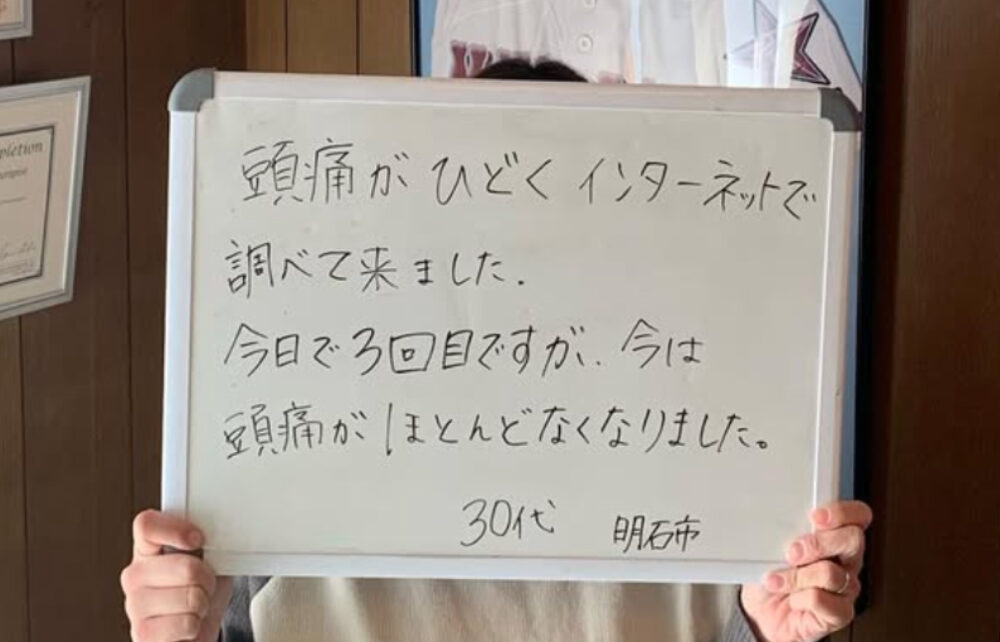 頭痛がひどくインターネットで
調べて来ました.
今日で3回目ですが、今は
頭痛がほとんどなくなりました。
30代 明石市
pletion